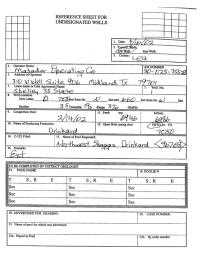 REFERENCE SHEET FOR
UNDESIGNATED WELLS
1. Date:
2. Type of Well:
Oil Well Gas Well
3. County:
Lea
4. Operator Name
Matador Operating Co
API NUMBER
5. Address of Operator
310 W Wall Suite 906 Midland TX 79701
6. Lease name or Unit Agreement Name
Shelley 35 State
7. Well No.
1
8. Well Location
Unit Letter Feet from the N line and 660 feet from the W line
35 NMPM
9. Completion Date
10. Perfs top bottom
2/14/02
11. Name of Producing Formation
Drinkard
12. Open Hole casing shoe
14. C-123 Filed: 15. Name of Pool Requested:
Northwest Skaggs Drinkard
16. Remarks
Ext
TO BE COMPLETED BY DISTRICT GEOLOGIST
17. POOL NAME 18. POOL ID #
T S, R E T S, R E
Sec Sec
Sec Sec
Sec Sec
Sec Sec
19. ADVERTISED FOR HEARING 20. CASE NUMBER
21. Name of pool for which was advertised
22a. Placed in Pool 22b. By order number